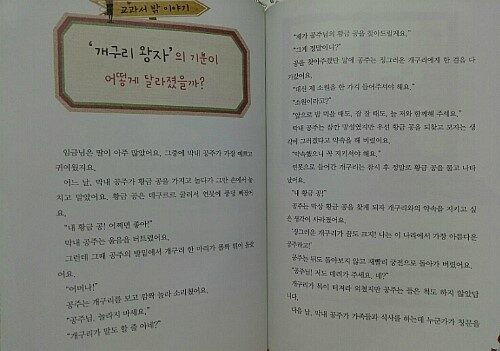 교과서 밖 이야기
'개구리 왕자'의 기분이
어떻게 달라졌을까?
임금님은 딸이 아주 많았어요. 그중에 막내 공주가 가장 예쁘고
귀여웠지요.
어느 날, 막내 공주가 황금 공을 가지고 놀다가 그만 손에서 놓
치고 말았어요. 황금 공은 데구르르 굴러서 연못에 풍덩 빠졌지
요.
"내 황금 공! 어쩌면 좋아!"
막내 공주는 울음을 터트렸어요.
그런데 그때 공주의 발밑에서 개구리 한 마리가 폴짝 뛰어 올랐
어요.
"어머나!"
공주는 개구리를 보고 깜짝 놀라 소리쳤어요.
"공주님, 놀라지 마세요."
"개구리가 말도 할 줄 아네?"
"제가 공주님의 황금 공을 찾아드릴게요."
"그게 정말이니?"
공을 찾아주겠단 말에 공주는 징그러운 개구리에게 한 걸음 다
가갔어요.
"대신 제 소원을 한 가지 들어주셔야 해요."
"소원이라고?"
"앞으로 밥 먹을 때도, 잠 잘 때도, 늘 저와 함께해 주세요."
막내 공주는 잠깐 망설였지만 우선 황금 공을 되찾고 보자는 생
각에 그러겠다고 약속을 해 버렸어요.
"약속했으니 꼭 지키셔야 해요."
연못으로 들어간 개구리는 잠시 후 정말로 황금 공을 물고 나타
났어요.
"내 황금 공!"
공주는 막상 황금 공을 찾게 되자 개구리와의 약속을 지키고 싶
은 생각이 사라졌어요.
'징그러운 개구리가 꿈도 크지! 나는 이 나라에서 가장 아름다운
공주라고!'
공주는 뒤도 돌아보지 않고 재빨리 궁전으로 돌아가 버렸어요.
"공주님! 저도 데려가 주세요. 네?"
개구리가 목이 터져라 외쳤지만 공주는 들은 척도 하지 않았답
니다.
다음 날, 막내 공주가 가족들과 식사를 하는데 누군가가 창문을